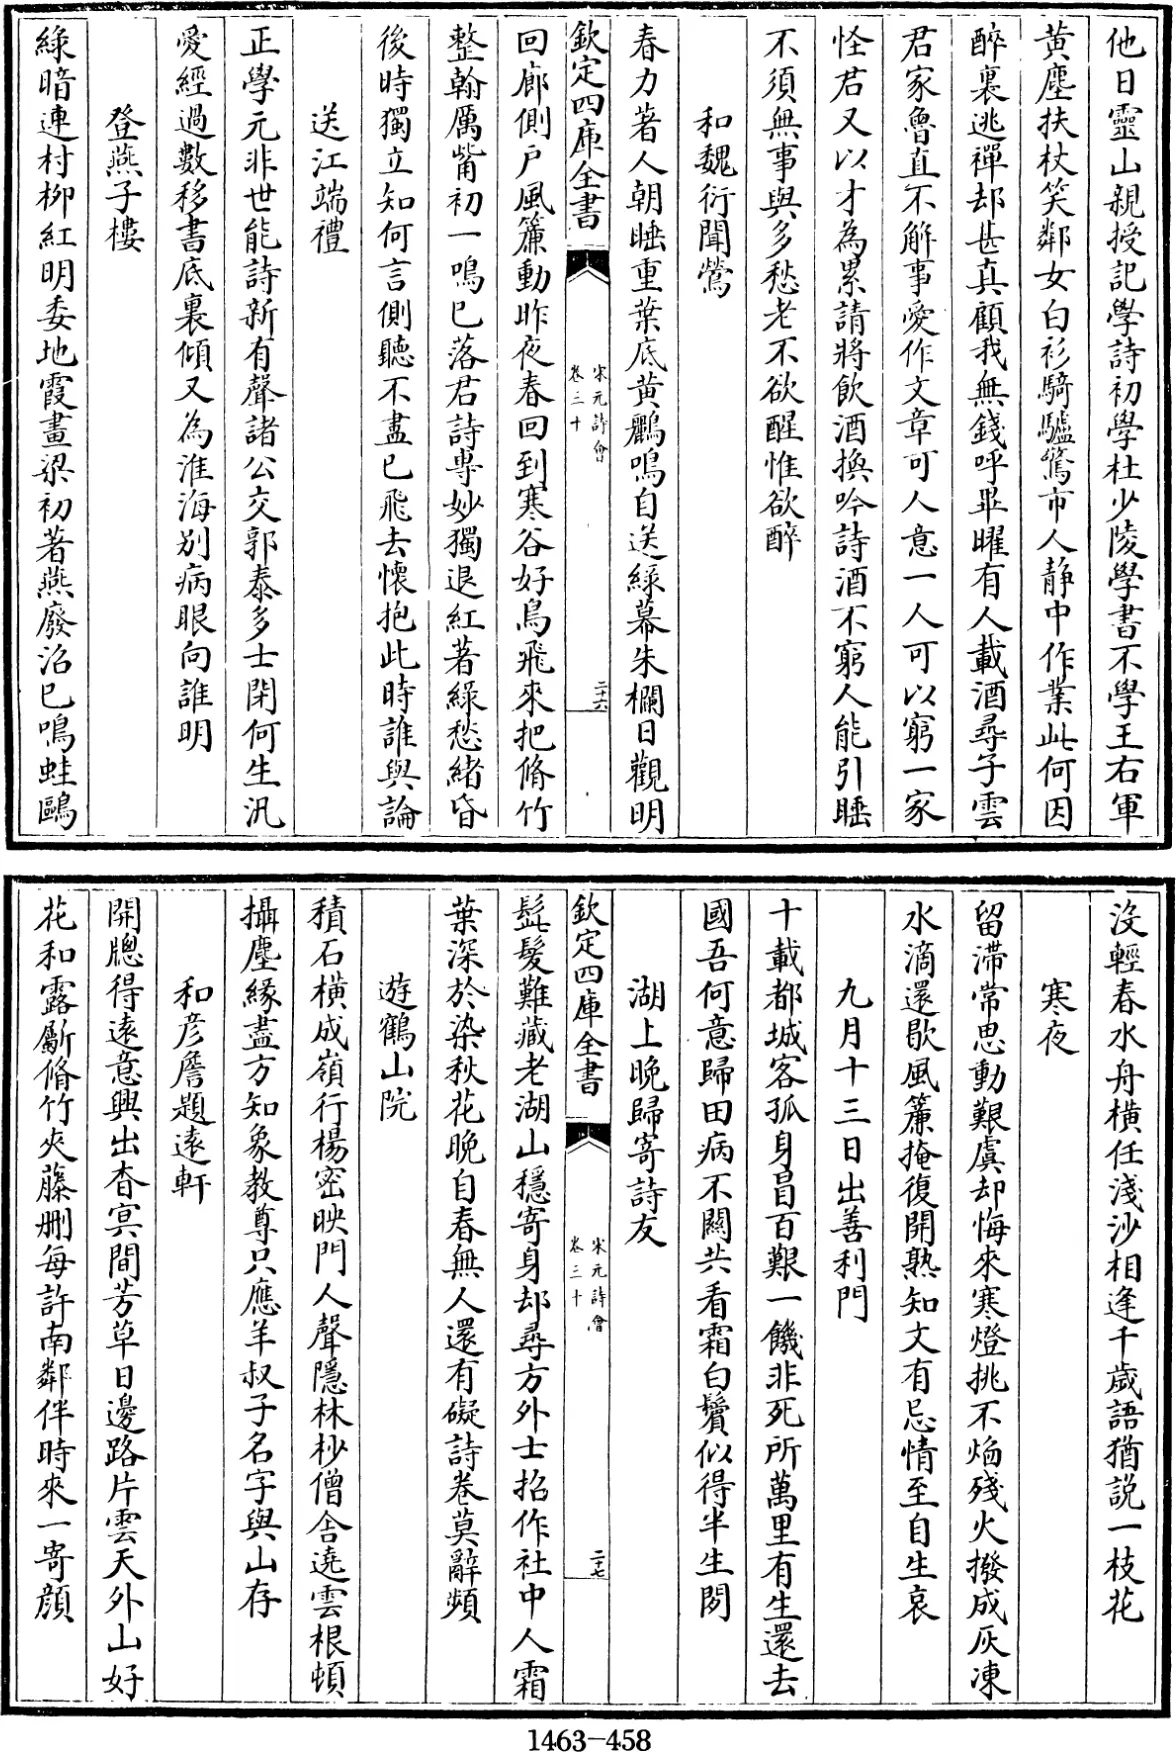 他日靈山親授記學詩初學杜少陵學書不學王右軍
黃塵扶杖笑鄰女白衫騎驢驚市人静中作業此何因
醉裏逃禪却甚真顧我無錢呼畢曜有人載酒尋子雲
君家魯直不解事愛作文章可人意一人可以窮一家
怪君又以才為累請將飲酒換吟詩酒不窮人能引睡
不須無事與多愁老不欲醒惟欲醉
和魏衍聞鶯
春力著人朝睡重葉底黃鸝鳴自送綠幕朱欄日觀明
欽定四庫全書
宋元詩會
卷三十
二十六
回廊側戶風簾動昨夜春回到寒谷好鳥飛來把脩竹
整翰厲觜初一鳴已落君詩專妙獨退紅著綠愁緒昏
後時獨立知何言側聽不盡已飛去懷抱此時誰與論
送江端禮
正學元非世能詩新有聲諸公交郭泰多士閉何生汎
愛經過數移書底裏傾又為淮海别病眼向誰明
登燕子樓
綠暗連村柳紅明委地霞畫梁初著燕廢沼已鳴蛙鷗
没輕春水舟橫任淺沙相逢千歲語猶説一枝花
寒夜
留滯常思動艱虞却悔來寒燈挑不焰殘火撥成灰凍
水滴還歇風簾掩復開熟知文有忌情至自生哀
九月十三日出善利門
十載都城客孤身冒百艱一饑非死所萬里有生還去
國吾何意歸田病不關共看霜白鬢似得半生閒
湖上晚歸寄詩友
欽定四庫全書
宋元詩會
卷三十
二十七
髭髮難藏老湖山穩寄身却尋方外士招作社中人霜
葉深於染秋花晚自春無人還有礙詩卷莫辭頻
遊鶴山院
積石橫成嶺行楊密映門人聲隱林杪僧舍遶雲根頓
攝塵緣盡方知象教尊只應羊叔子名字與山存
和彦詹題遠軒
開牕得遠意興出杳冥間芳草日邊路片雲天外山好
花和露斸脩竹夾藤刪每許南鄰伴時來一寄顔
1463—458